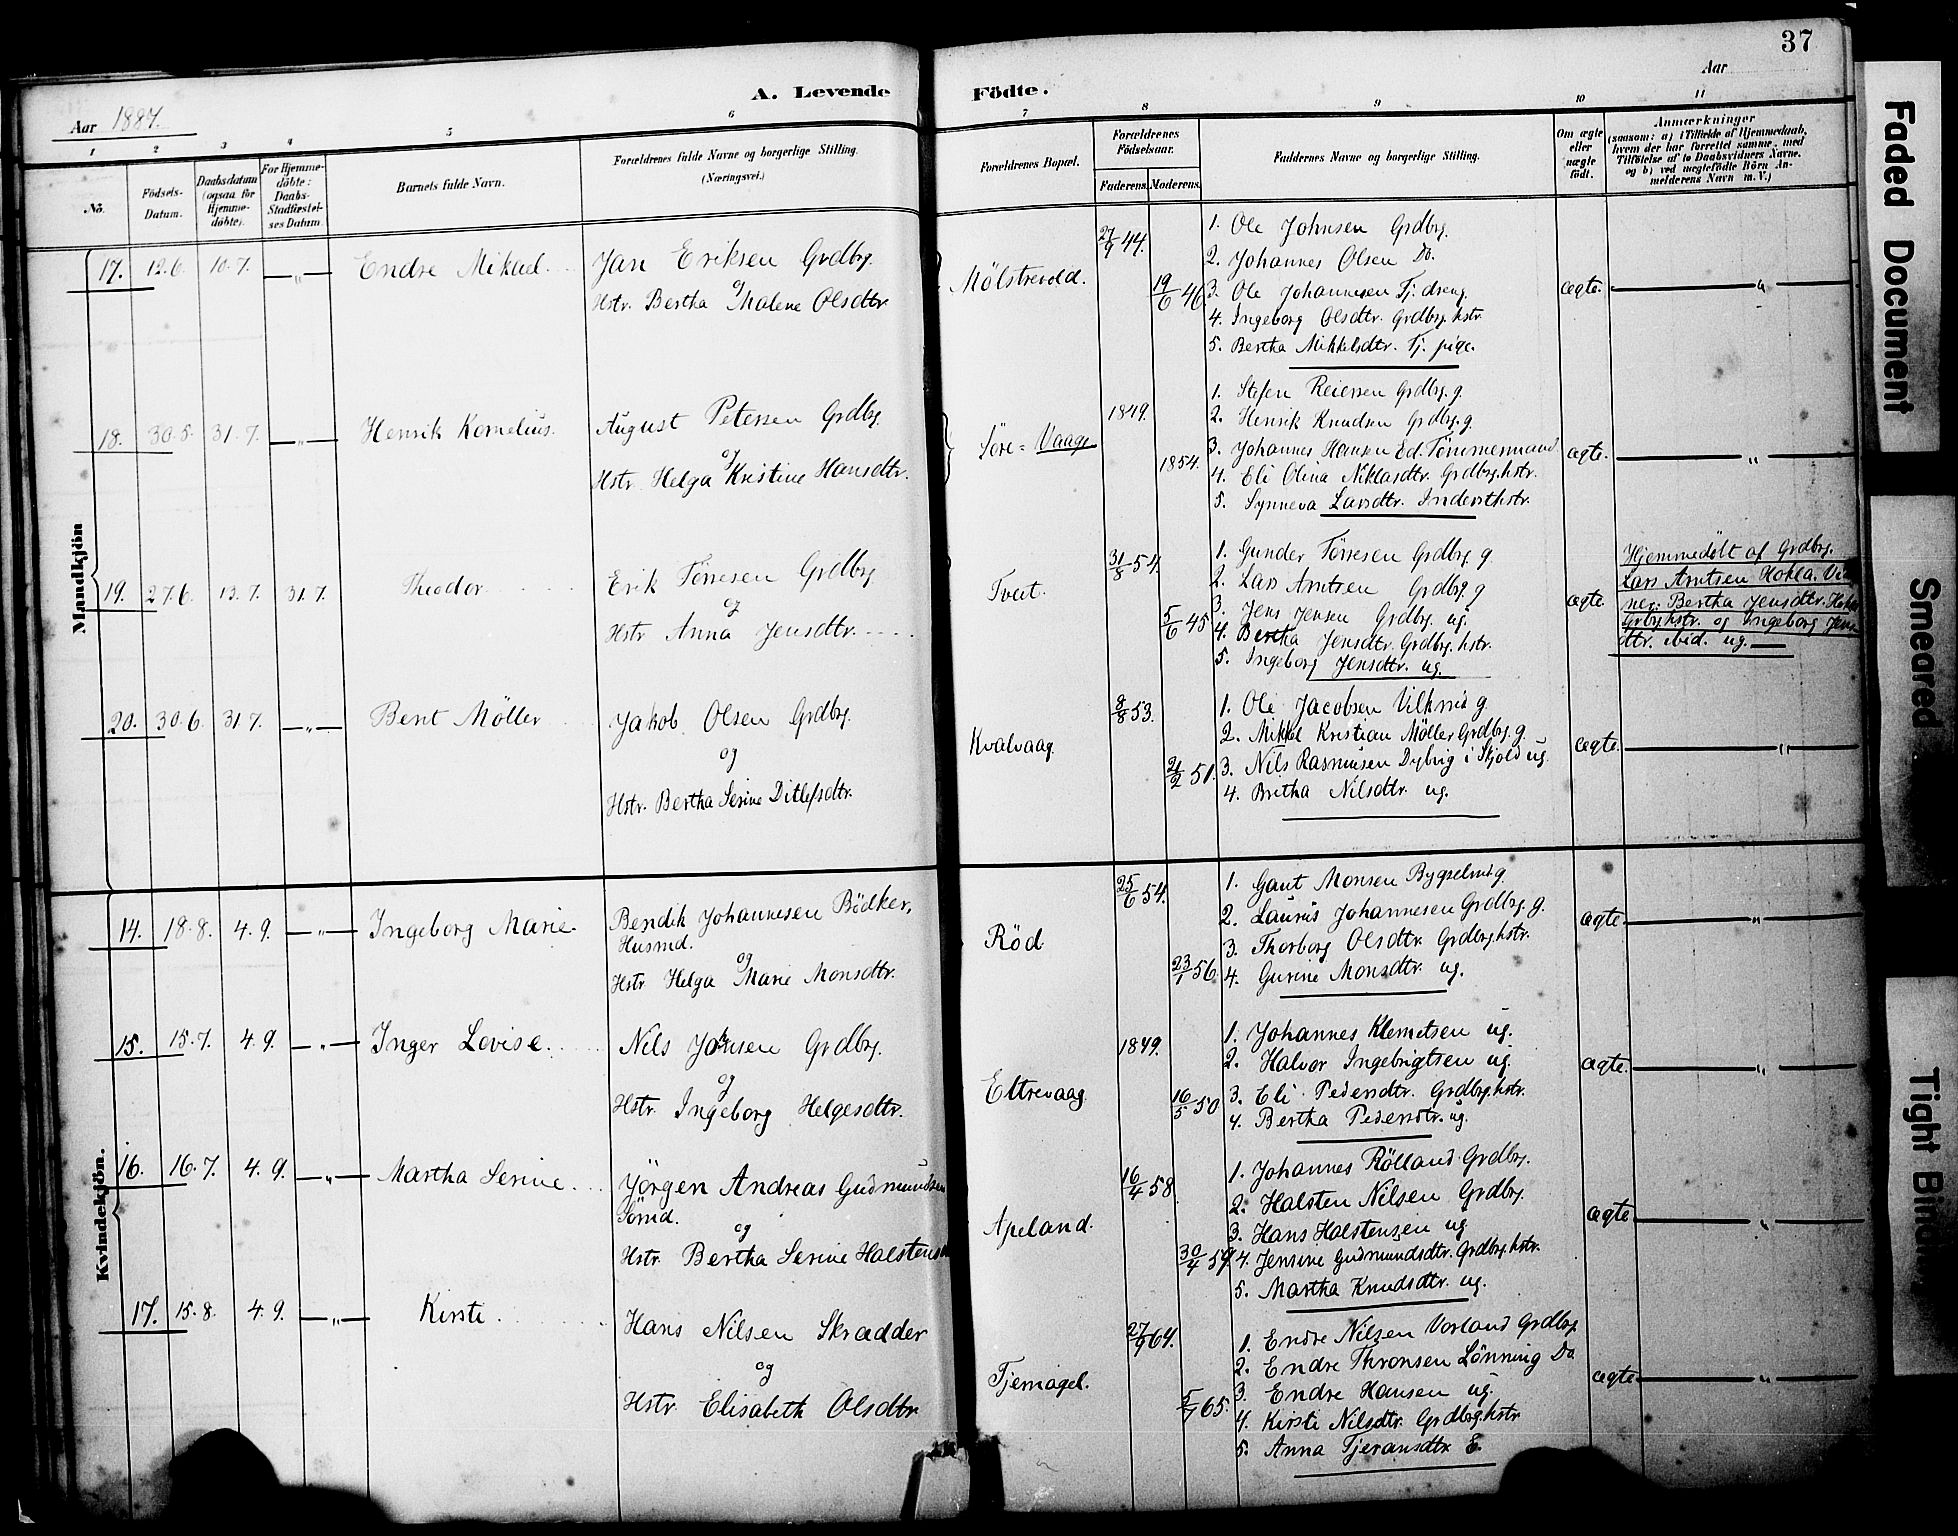 37
Aar 1887.
A. Levende Födte.
Aar
1 2 3 4 5 6 7 8 9 10 11
No.
Födsels-Datum.
Daabsdatum (ogsaa for Hjemme-döbte).
For Hjemme-döbte: Daabs-Stadfæstel-ses Datum.
Barnets fulde Navn.
Forældrenes fulde Navne og borgerlige Stilling.
(Næringsvei.)
Forældrenes Bopæl.
Forældrenes Födselsaar.
Faderens. Moderens.
Faddernes Navne og borgerlige Stilling.
Om ægte eller uægte födt.
Anmærkninger
(saasom: a) i Tilfælde af Hjemmedaab,
hvem der har forrettet samme, med
Tilföielse af to Daabsvidners Navne.
og b) ved uægtefödte Börn An-
melderens Navn m. V.)
Mandkjön
17. 12.6. 10.7. — „ — Endre Mikael. Jan Eriksen Grdbrg.
og
Hstr. Bertha Malene Olsdtr.
Mølstrevold. 27/9 44. 19/6 46.
1. Ole Johnsen Grdbrg.
2. Johannes Olsen Do.
3. Ole Johannesen Tj. dreng.
4. Ingeborg Olsdtr. Grdbrg. hstr.
5. Bertha Mikkelsdtr. Tj. pige.
ægte. — „ —
18. 30.5. 31.7. — „ — Henrik Kornelius. August Petersen Grdbrg.
og
Hstr. Helga Kristine Hansdtr.
Søre = Vaage 1849. 1854.
1. Stefen Reiersen Grdbrg. g.
2. Henrik Knudsen Grdbrg. g.
3. Johannes Hansen Ed. Tømmermand
4. Eli Olina Niklasdtr. Grdbrg.hstr.
5. Synneva Larsdtr. Indersthstr.
ægte. — „ —
19. 27.6. 13.7. 31.7. Theodor Erik Tørresen Grdbrg
og
Hstr Anna Jensdtr.
Tveit. 31/8 54. 5/6 45
1. Gunder Tørresen Grdbrg. g.
2. Lars Arntsen Grdbrg. g
3. Jens Jensen Grdbrg. ug.
4. Bertha Jensdtr. Grdbrg. hstr.
5. Ingeborg Jensdtr. ug.
ægte.
Hjemmedøbt af Grdbrg.
Lars Arntsen Hokla. Vid
ner: Bertha Jensdtr. Hokla
Grbrghstr. og Ingeborg Jens
dtr. ibid. ug.
20. 30.6. 31.7. — „ — Bent Möller Jakob Olsen Grdbrg.
og
Hstr. Bertha Serine Ditlefsdtr.
Kvalvaag 8/8 53. 21/2 51.
1. Ole Jacobsen Viknis g.
2. Mikkel Kristian Möller Grdbrg. g.
3. Nils Rasmusen Dybvig i Skjold ug.
4. Britha Nilsdtr. ug.
ægte. — „ —
Kvindekjön.
14. 18.8. 4.9. — „ — Ingeborg Marie. Bendik Johannesen Bödker,
Husmd.
og
Hstr. Helga Marie Monsdtr.
Röd 25/6 54. 23/1 56.
1. Gaut Monsen Bygselmd g.
2. Laurits Johannesen Grdbrg. g.
3. Thorborg Olsdtr. Grdbrg.hstr.
4. Gurine Monsdtr. ug.
ægte. — „ —
15. 15.7. 4.9. — „ — Inger Lovise. Nils Johnsen Grdbrg.
og
Hstr. Ingeborg Helgesdtr.
Eltrevaag. 1849. 16/5 50
1. Johannes Klemetsen ug.
2. Halvor Ingebrigtsen ug.
3. Eli Pedersdtr. Grdbrg.hstr.
4. Bertha Pedersdtr. ug.
ægte. — „ —
16. 16.7. 4.9. — „ — Martha Serine. Jörgen Andreas Gudmundsen
Sømd.
og
Hstr. Bertha Serine Halstensd
Apeland. 16/4 58. 30/4 59
1. Johannes Rölland Grdbrg.
2. Halsten Nilsen Grdbrg.
3. Hans Halstensen ug
4. Jensine Gudmundsdtr. Grdbrg.hstr.
5. Martha Knudsdtr. ug.
ægte — „ —
17. 15.8. 4.9. — „ — Kirsti Hans Nilsen Skrædder
og
Hstr. Elisabeth Olsdtr
Tjernagel. 27/9 64. 5/7 65.
1. Endre Nilsen Vorland Grdbrg.
2. Endre Thronsen Lönning Do
3. Endre Hansen ug.
4. Kirsti Nilsdtr. Grdbrg.hstr.
5. Anna Tjeransdtr. E.
ægte — „ —
Faded Document
Smeared
Tight Bindin